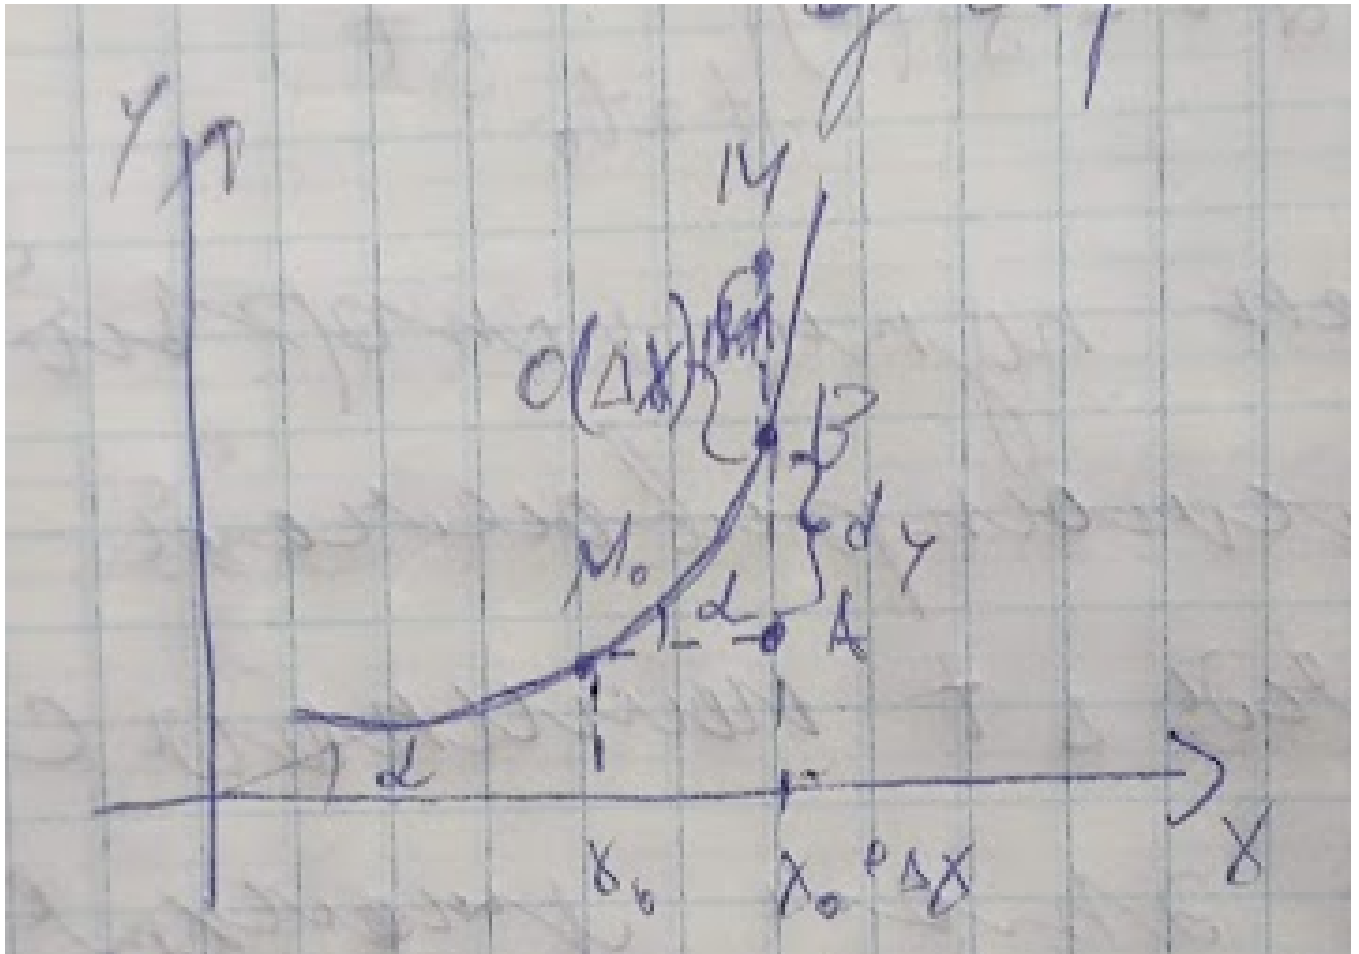 Y
M
O(ΔX)
B
M₀
dy
α
A
α
X₀
X₀ + ΔX
X